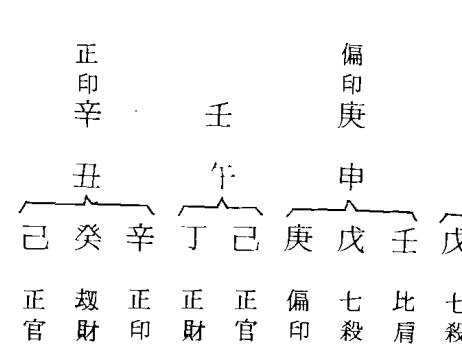 正印 偏印
辛 壬 庚
丑 午 申
己 癸 辛 丁 己 庚 戊 壬 戊
正官 刼財 正印 正財 正官 偏印 七殺 比肩 七殺